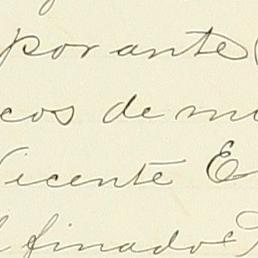 por ante
cos de
Vicente E
finado